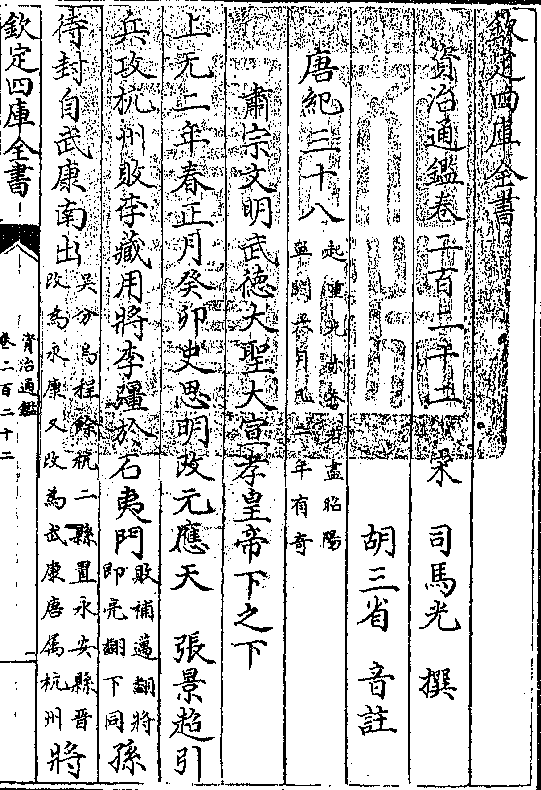 欽定四庫全書
資治通鑑卷二百二十二 宋 司馬光 撰
胡三省 音註
唐紀三十八
起重光赤奮若盡昭陽
單閼月凡二年有奇
肅宗文明武德大聖大宣孝皇帝下之下
上元二年春正月癸卯史思明改元應天 張景超引
兵攻杭州敗李藏用將李彊於石夷門
敗補邁翻將
即亮翻下同
孫
待封自武康南出
吳分烏程餘杭二縣置永安縣晉
改為永康又改為武康唐屬杭州
將
欽定四庫全書
資治通鑑
卷二百二十二
一